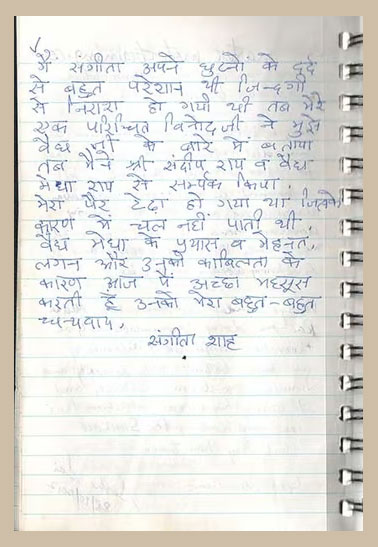 मैं संगीता अपने घुटनों के दर्द
से बहुत परेशान थी जिन्दगी
से निराश हो गयी थी तब मेरे
एक परिचित विनोद जी ने मुझे
वैद्य जी के बारे में बताया
तब मैंने श्री संदीप राय व वैद्य
मेधा राय से सम्पर्क किया.
मेरा पैर टेढ़ा हो गया था जिसके
कारण में चल नहीं पाती थी.
वैद्य मेधा के प्रयास व मेहनत,
लगन और उनकी काबिलता के
कारण आज में अच्छा महसूस
करती हूँ उनको मेरा बहुत-बहुत
धन्यवाद.
संगीता शाह